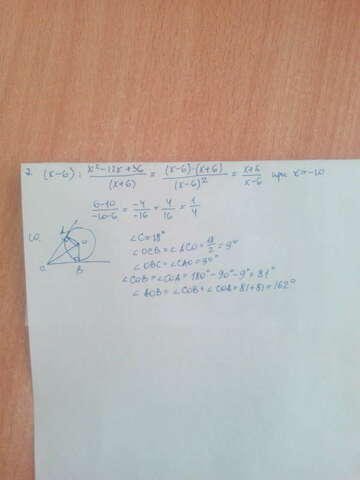 2. (x-6) : x²-12x+36 / (x+6) = (x-6)·(x+6) / (x-6)² = x+6 / x-6 при x=-10
6-10 / -10-6 = -4 / -16 = 4 / 16 = 1 / 4
10.
A
O
C
B
∠C=18°
∠OCB=∠ACO=18/2=9°
∠OBC=∠CAO=90°
∠COB=∠COA=180°-90°-9°=81°
∠AOB=∠COB+∠COA=81+81=162°